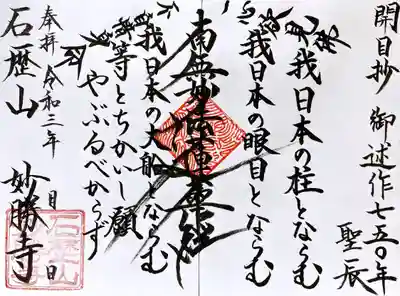 開目抄 御述作七五〇年
聖辰
我日本の柱とならむ
我日本の眼目とならむ
南無妙法蓮華経
我日本の大船とならむ
等とちかいし願
やぶるべからず
奉拝 令和三年 月 日
石歴山 妙勝寺